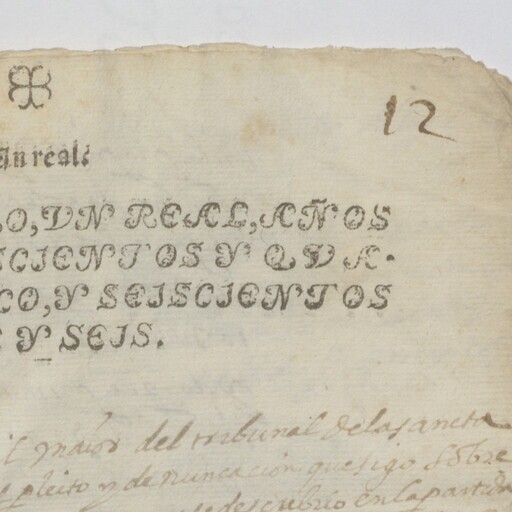 12
Un real.
O, VN REAL, AÑOS
SCIENTOS Y QVA-
CO, Y SEISCIENTOS
Y SEIS.
maior del tribunal de la sancta
pleito y denunciacion que sigo sobre
se descubrio en la partida